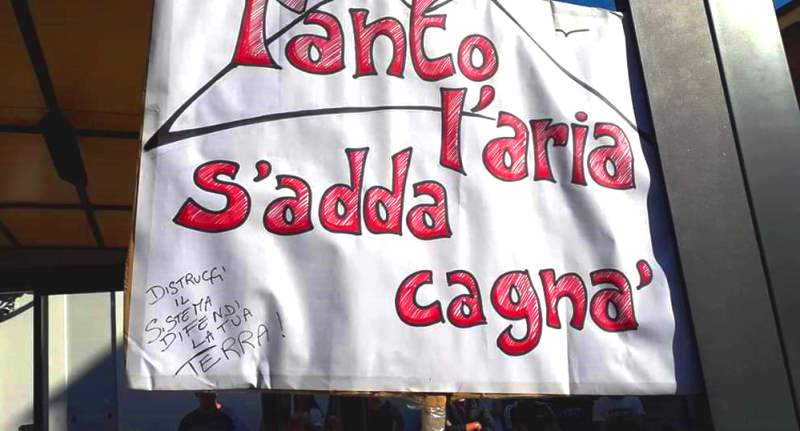 Tanto
l'aria
s'adda
cagna'
DISTRUGGI
IL
SISTEMA
DIFENDI
LA TUA
TERRA!